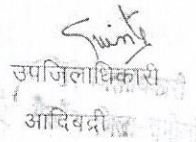 उपजिलाधिकारी
आदिबद्री